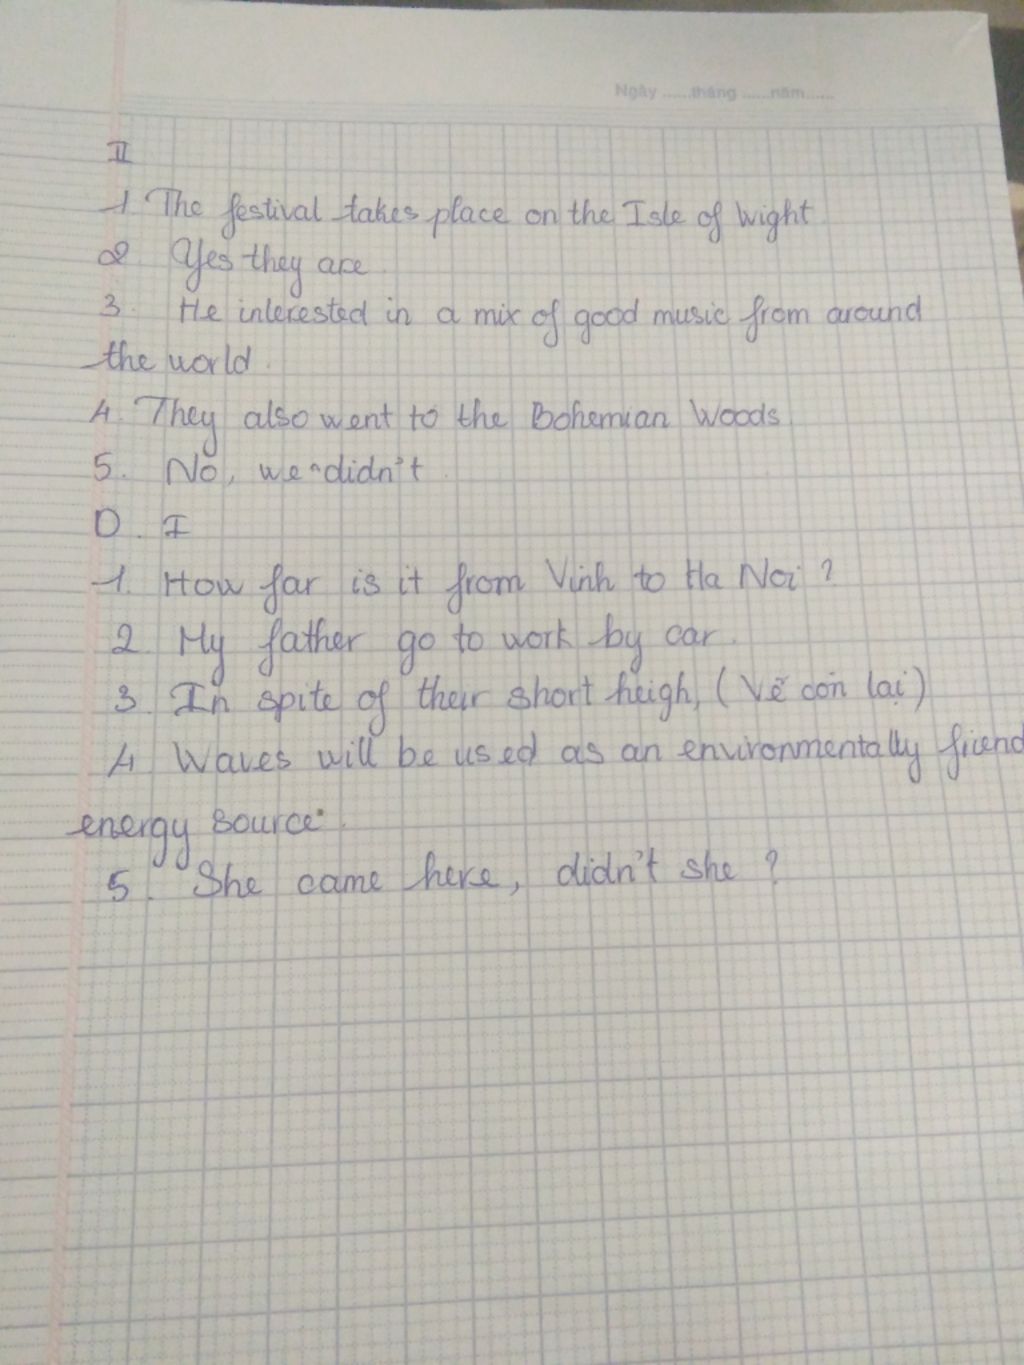 Ngày ......tháng ......năm......
II
1 The festival takes place on the Isle of Wight
2. Yes they are
3. He interested in a mix of good music from around
the world.
4. They also went to the Bohemian Woods
5. No, we didn't.
D. I
1. How far is it from Vinh to Ha Noi ?
2. My father go to work by car.
3. In spite of their short heigh, (Vế còn lại)
4 Waves will be used as an environmentally friend
energy source.
5. She came here, didn't she ?